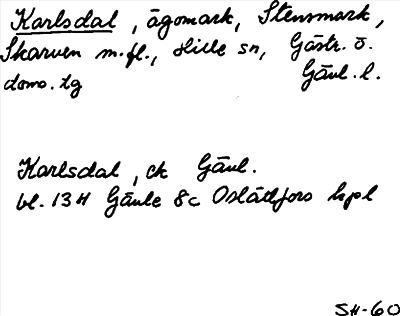 Karlsdal, ägomark, Stensmark,
Skarven m.fl., Hille sn, Gästr. ö.
doms. tg Gävl. l.
Karlsdal, ek Gävl.
bl. 13H Gävle 8c Oslättfors hpl
SH-60